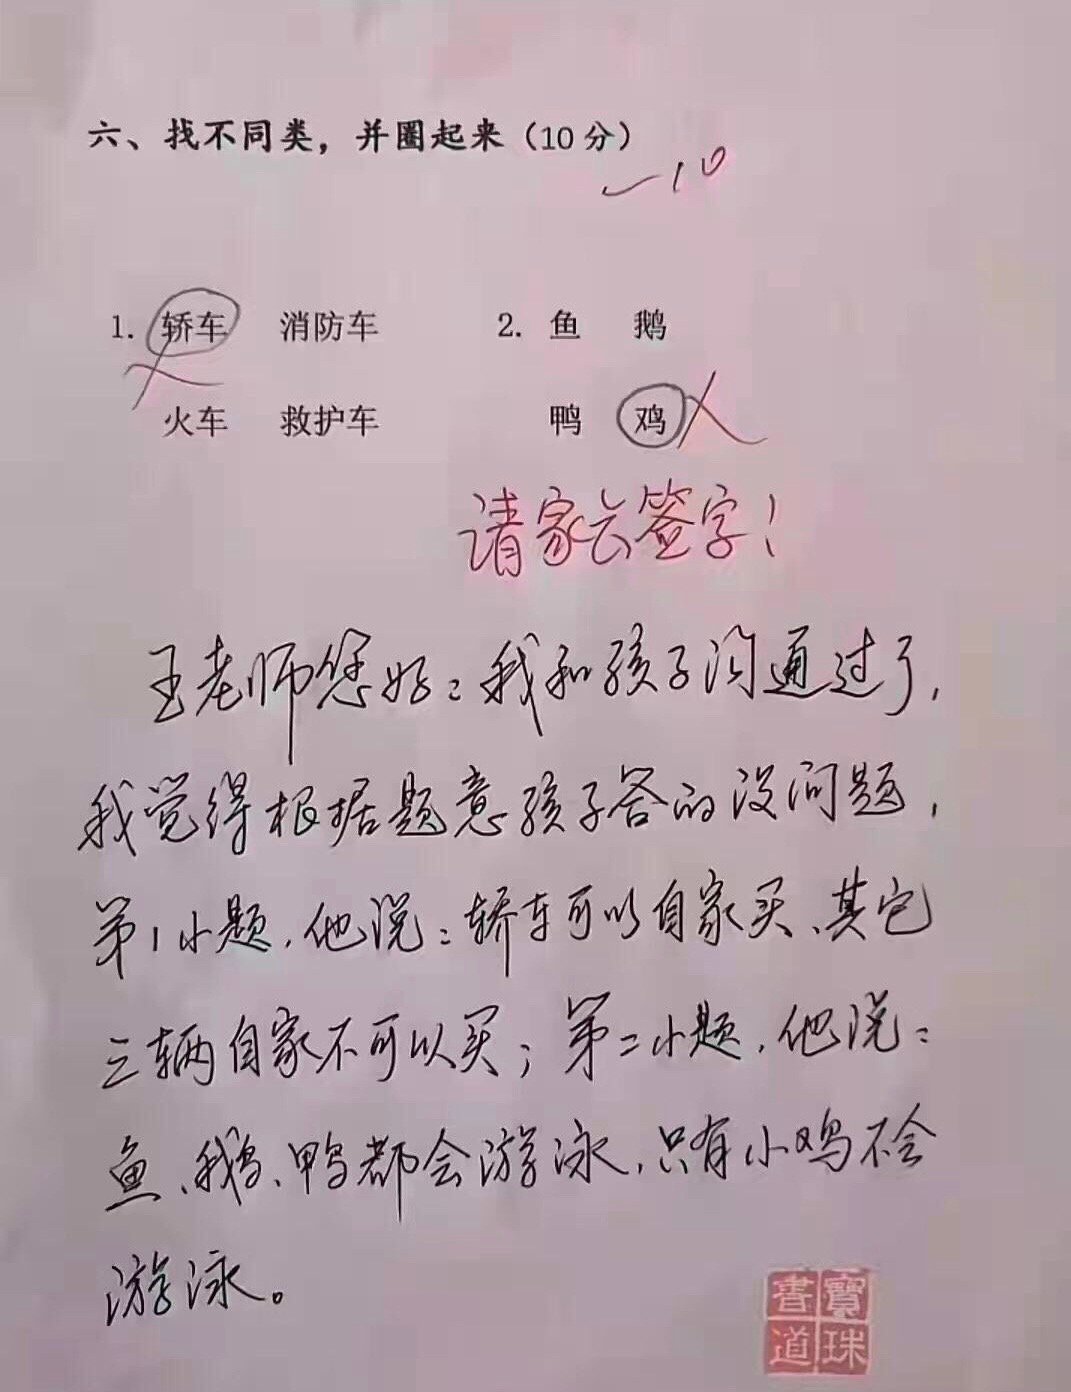 六、找不同类，并圈起来（10分）
-10
1. 轿车 消防车
火车 救护车
2. 鱼 鹅
鸭 鸡
请家长签字！
王老师您好：我和孩子沟通过了，
我觉得根据题意孩子答的没问题，
第1小题，他说：轿车可以自家买、其它
三辆自家不可以买；第二小题，他说：
鱼、鹅、鸭都会游泳，只有小鸡不会
游泳。
寶珠
書道